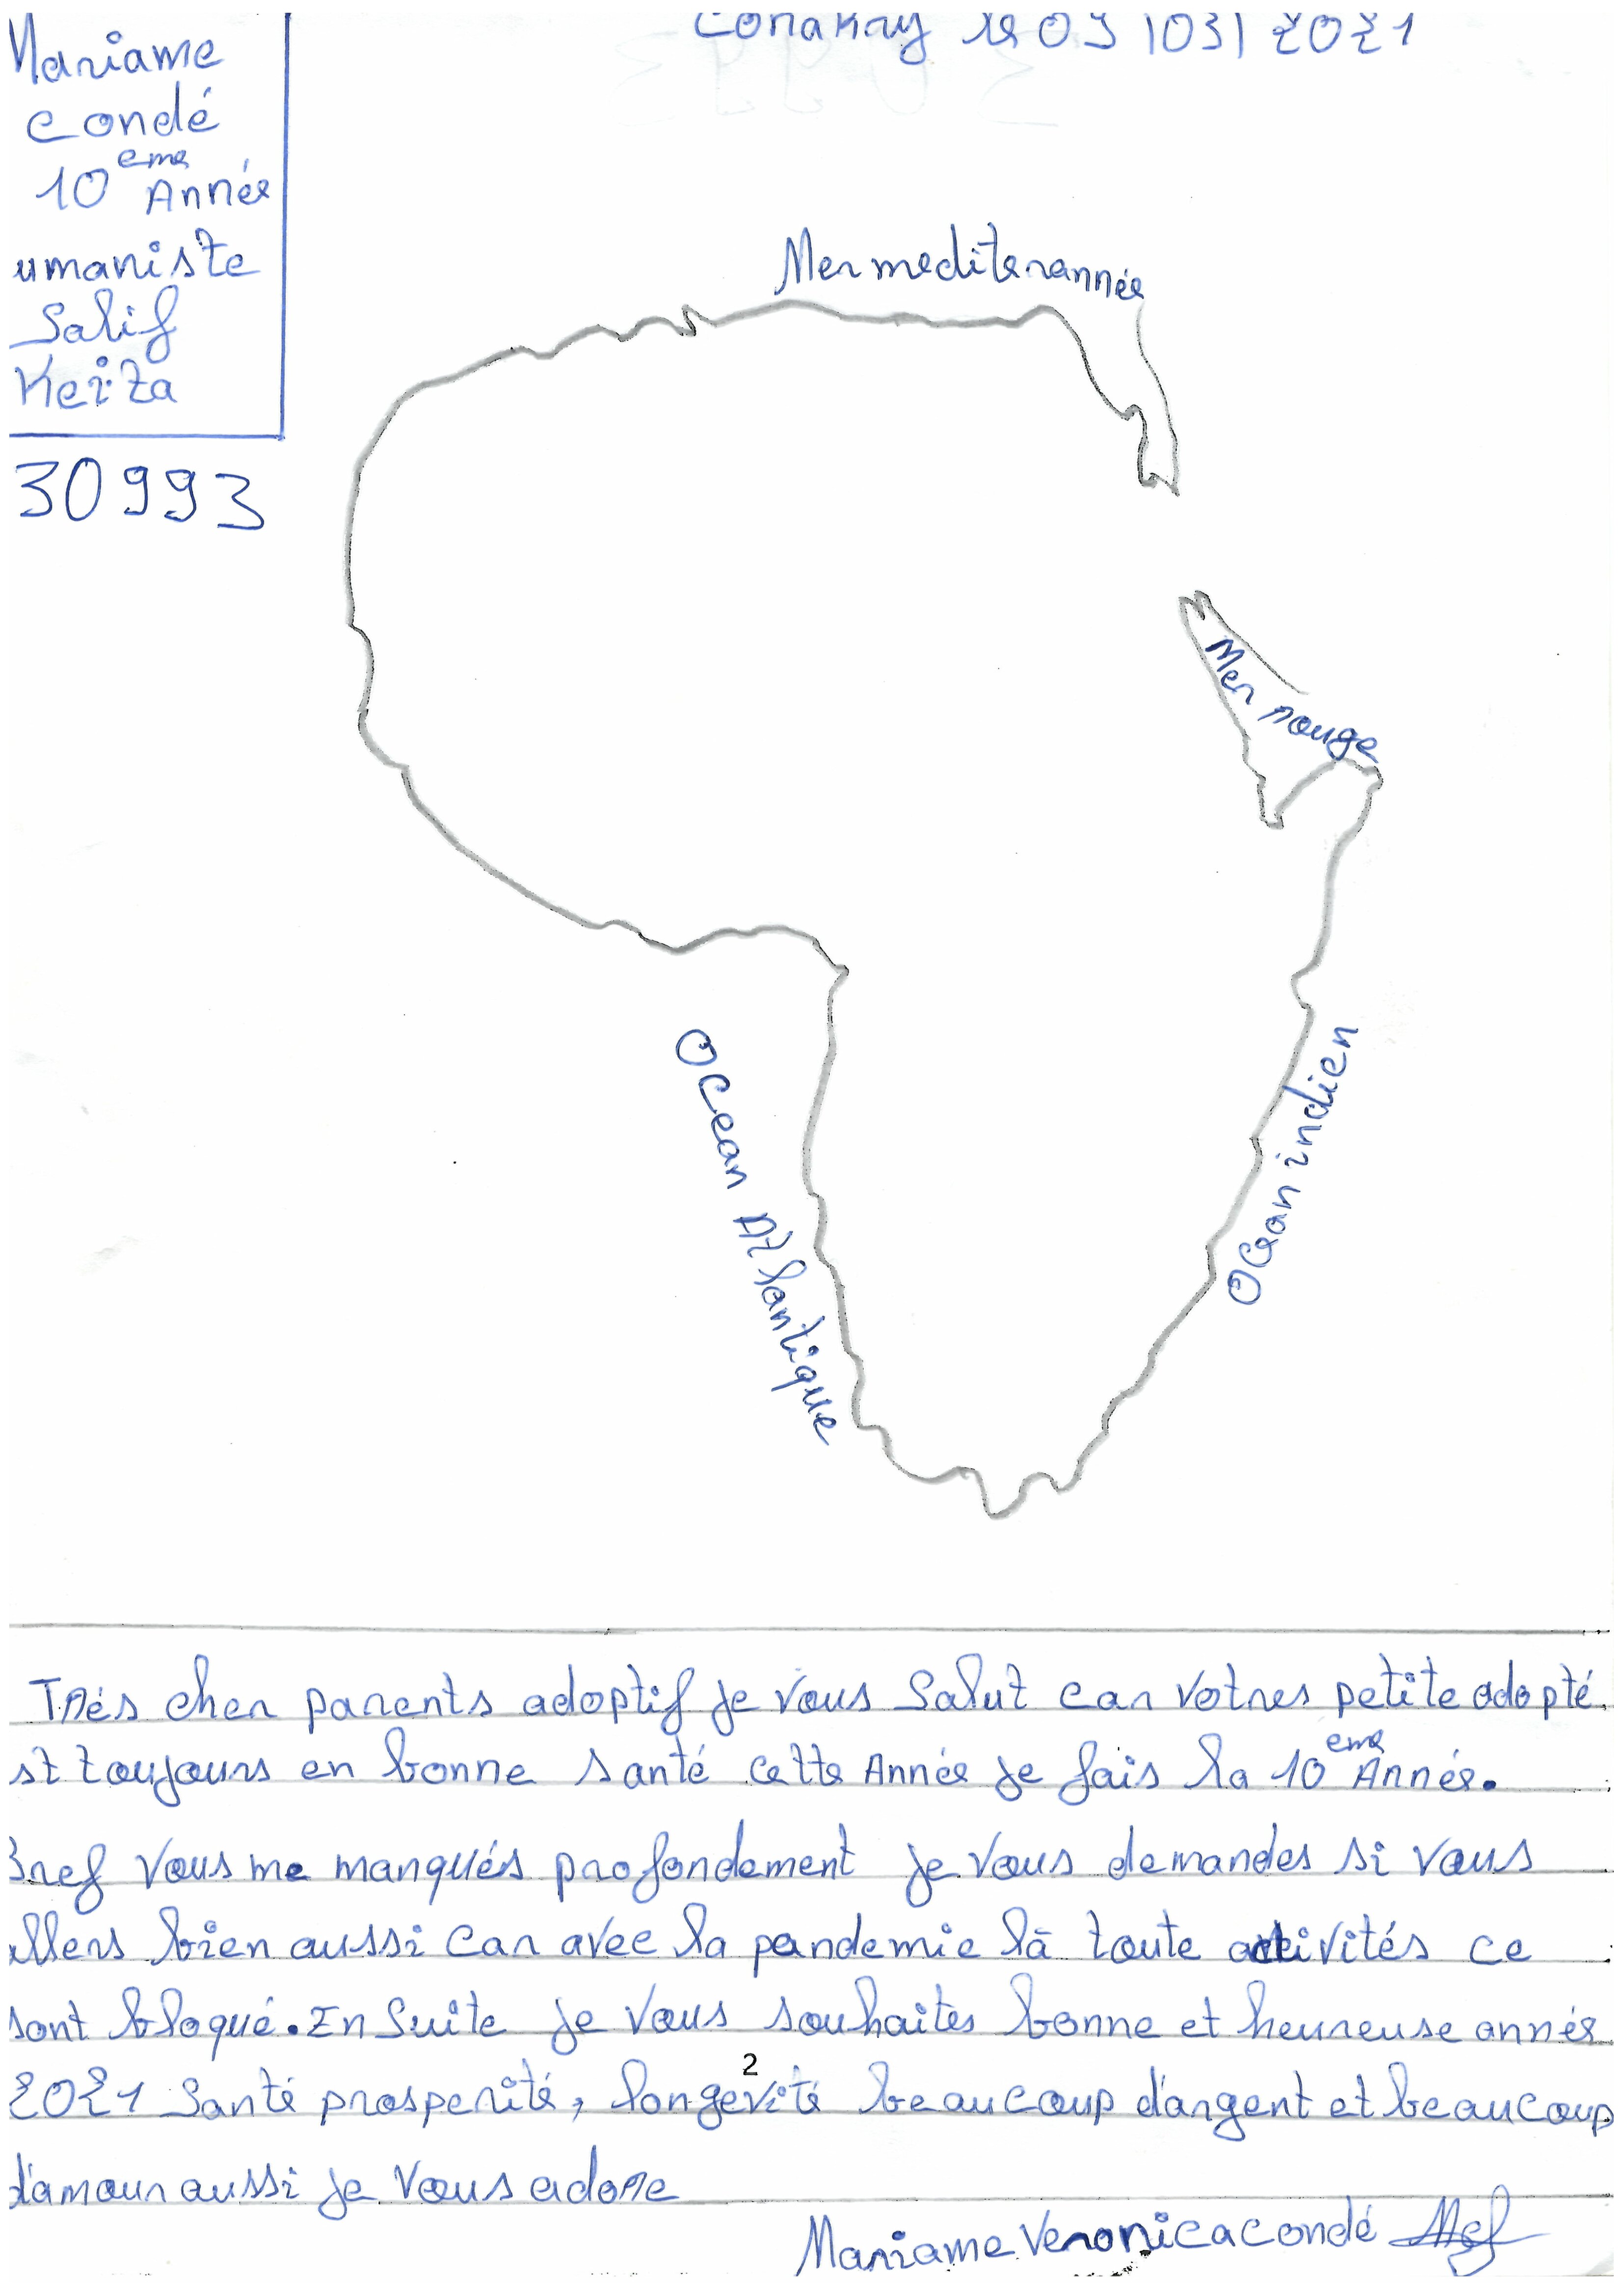 Conakry le 09/03/2021
Mariame
Condé
10eme Année
umaniste
Salif
Keita
30993
Mer mediterannée
Mer rouge
Ocean Atlantique
Ocean indien
Trés cher parents adoptif je vous Salut car votres petite adopté
st toujours en bonne santé cette Année je fais la 10eme Année.
Bref vous me manqués profondement je vous demandes si vous
allers bien aussi car avec la pandemie là toute activités ce
sont bloqué. En Suite je vous souhaites bonne et heureuse année
2021 Santé prosperité, longevité beaucoup d'argent et beaucoup
d'amour aussi je vous adore
2
Mariame Veronica Condé